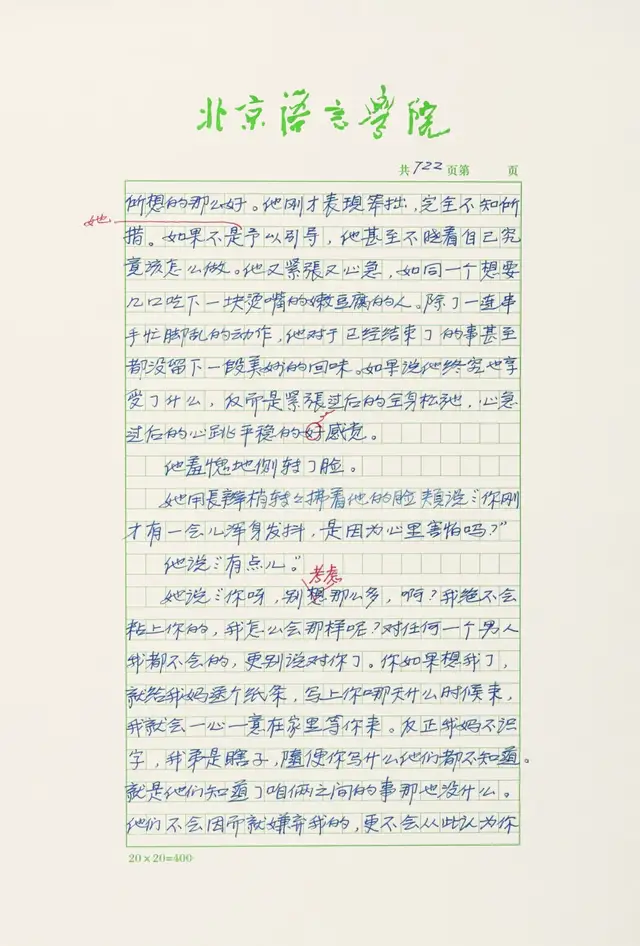 北京语言學院
共722页第 页
所想的那么好。他刚才表现笨拙，完全不知所
她
措。如果不是予以引导，他甚至不晓着自己究
竟该怎么做。他又紧張又心急，如同一个想要
几口吃下一块烫嘴的嫩豆腐的人。除了一連串
手忙脚乱的动作，他对于已经结束了的事甚至
都没留下一段美好的回味。如果说他终究也享
受了什么，反而是紧張过后的全身松弛，心急
过后的心跳平稳的好感觉。
他羞愧地侧转了脸。
她用長辫梢转上拂着他的脸頰说：“你刚
才有一会儿浑身发抖，是因为心里害怕吗？”
他说：“有点儿。”
考虑
她说：“你呀，别想那么多，啊？我绝不会
粘上你的，我怎么会那样呢？对任何一个男人
我都不会的，更别说对你了。你如果想我了，
就给我妈塞个纸条，写上你哪天什么时候来，
我就会一心一意在家里等你来。反正我妈不识
字，我弟是瞎子，隨便你写什么他们都不知道。
就是他们知道了咱俩之间的事那也没什么。
他们不会因而就嫌弃我的，更不会从此认为你
20×20=400